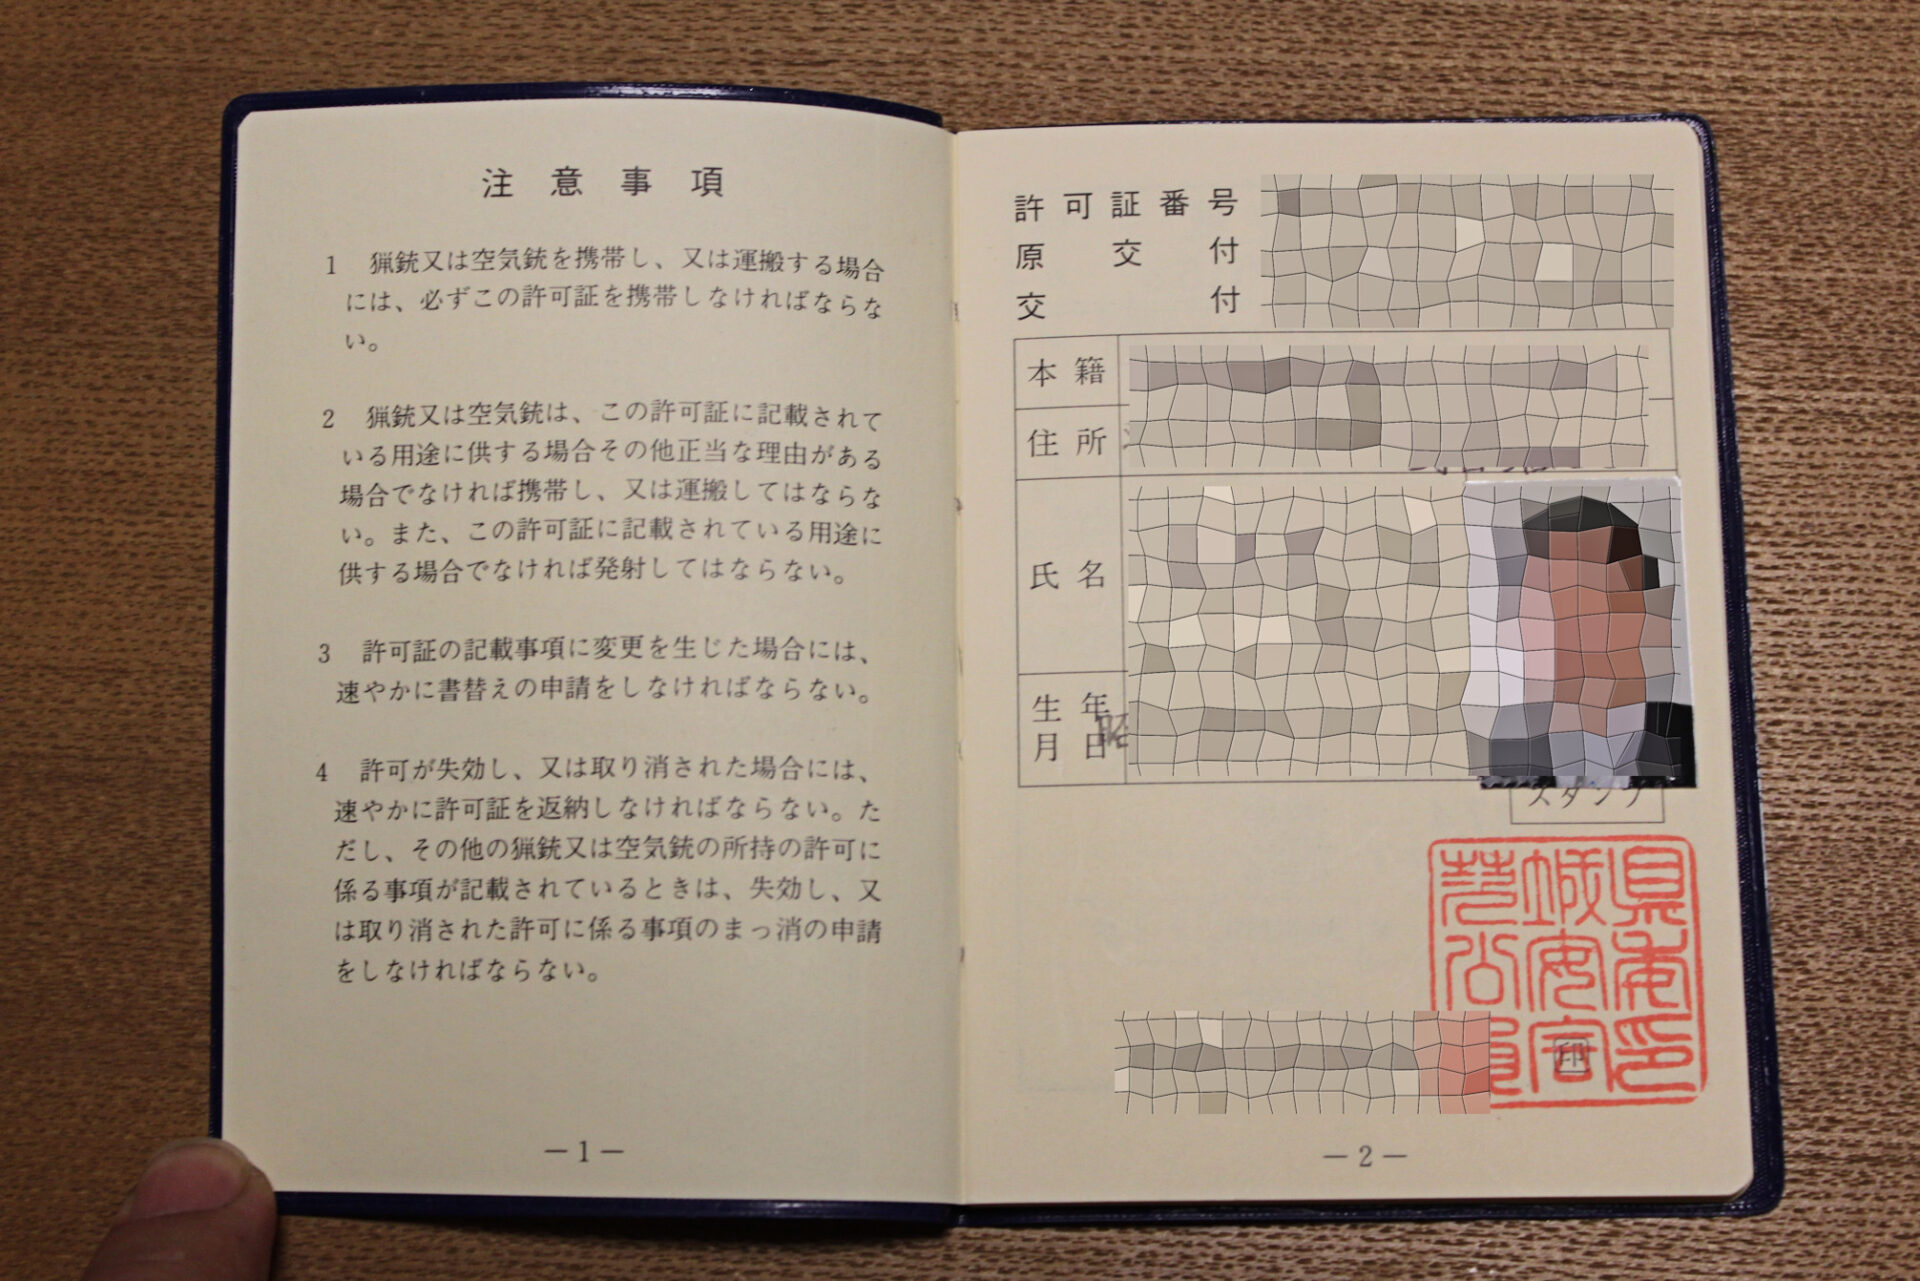 注意事項
1 猟銃又は空気銃を携帯し、又は運搬する場合
には、必ずこの許可証を携帯しなければならな
い。
2 猟銃又は空気銃は、この許可証に記載されて
いる用途に供する場合その他正当な理由がある
場合でなければ携帯し、又は運搬してはならな
い。また、この許可証に記載されている用途に
供する場合でなければ発射してはならない。
3 許可証の記載事項に変更を生じた場合には、
速やかに書替えの申請をしなければならない。
4 許可が失効し、又は取り消された場合には、
速やかに許可証を返納しなければならない。た
だし、その他の猟銃又は空気銃の所持の許可に
係る事項が記載されているときは、失効し、又
は取り消された許可に係る事項のまっ消の申請
をしなければならない。
—1—
許可証番号
原交付
交付
本籍
住所
氏名
生年
月日
昭
スタンプ
県委印
城安員
印
—2—